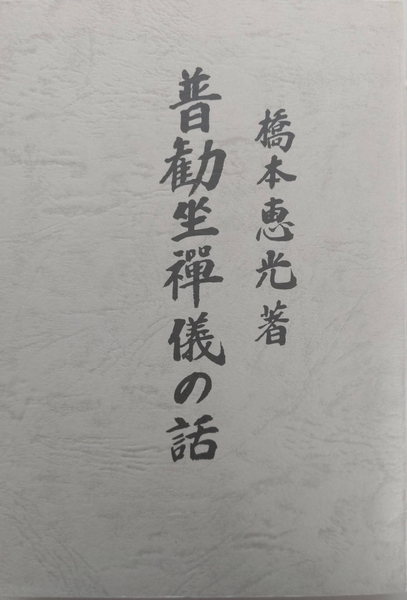 橋本恵光著
普勧坐禪儀の話